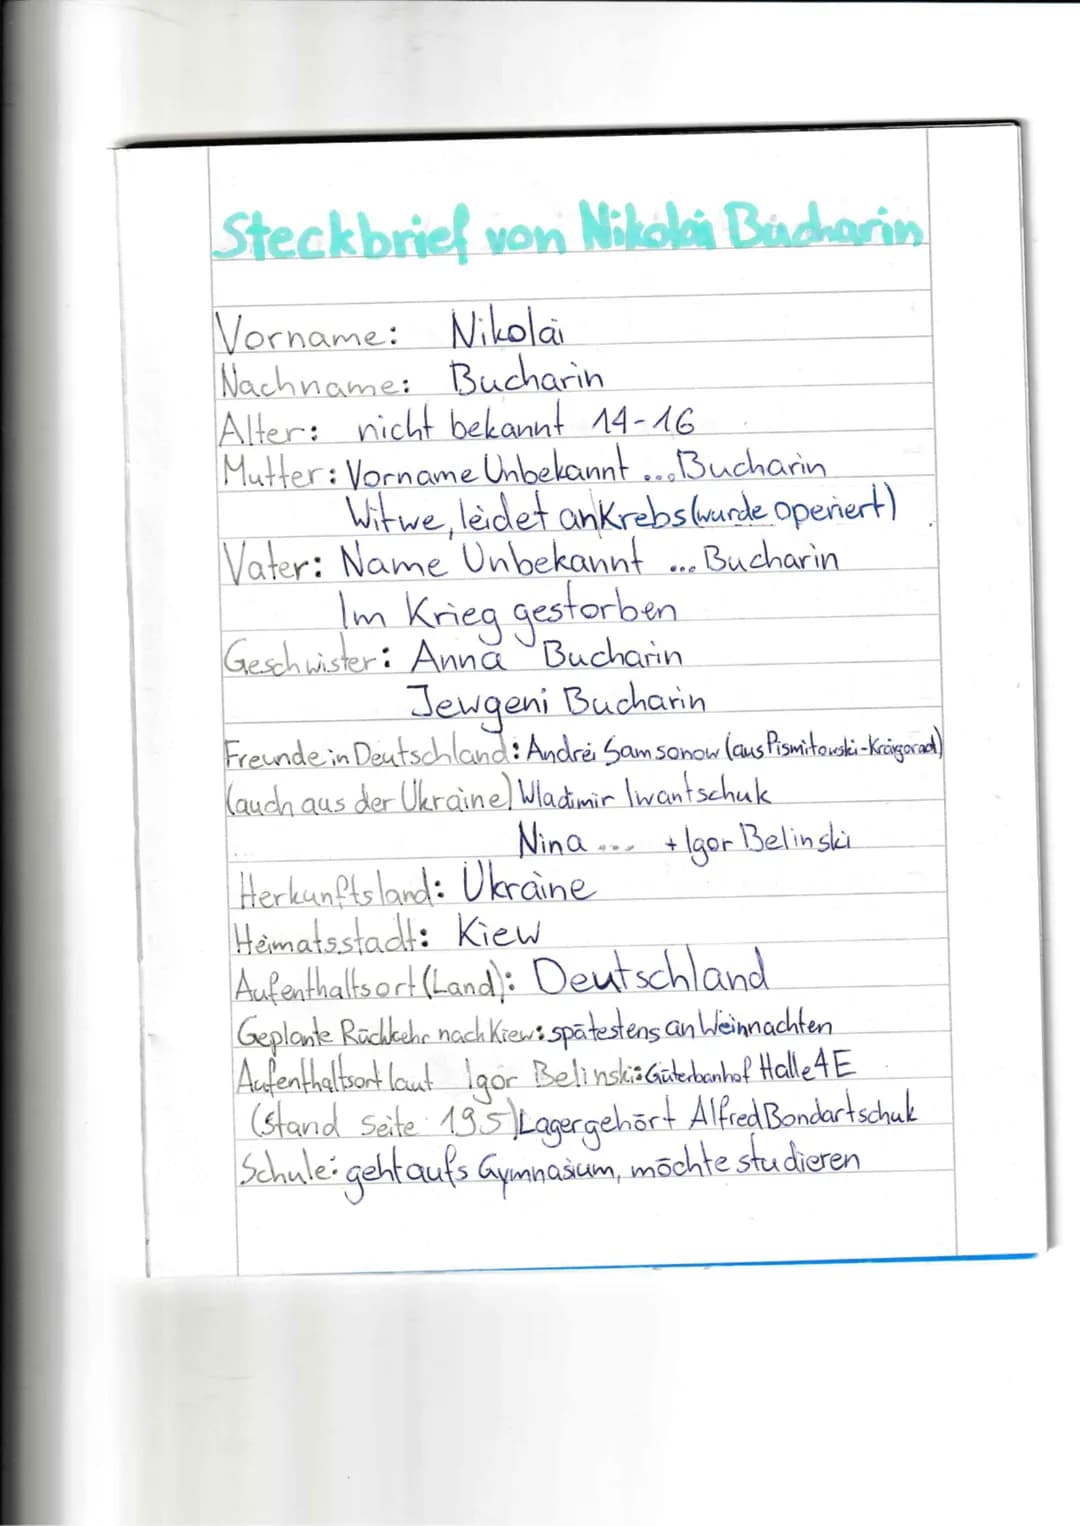 Steckbrief von Nikolai Bucharin
Vorname: Nikolai
Nachname: Bucharin
Alter: nicht bekannt 14-16
Mutter: Vorname Unbekannt ... Bucharin
Witwe, leidet an Krebs (wurde operiert)
Vater: Name Unbekannt ... Bucharin
Im Krieg gestorben
Geschwister: Anna Bucharin
Jewgeni Bucharin
Freunde in Deutschland: Andrei Samsonow (aus Pismitowski-)
(auch aus der Ukraine) Wladimir Iwantschuk
Nina .... + Igor Belinski
Herkunftsland: Ukraine
Heimatsstadt: Kiew
Aufenthaltsort (Land): Deutschland
Geplante Rückkehr nach Kiew: spätestens an Weinnachten
Aufenthaltsort laut Igor Belinski: Güterbanhof Halle 4E
(Stand Seite 195) Lager gehört Alfred Bondartschuk
Schule: geht aufs Gymnasium, möchte studieren